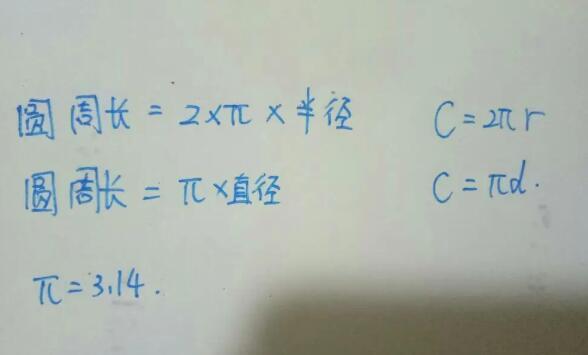 圆周长 = 2×π×半径 C=2πr
圆周长 = π×直径 C=πd.
π=3.14.